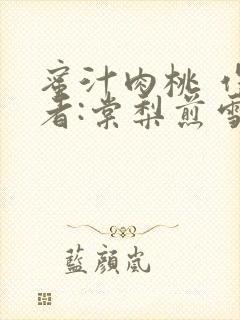 蜜汁肉桃 作
者:棠梨煎雪
藍顔嵐